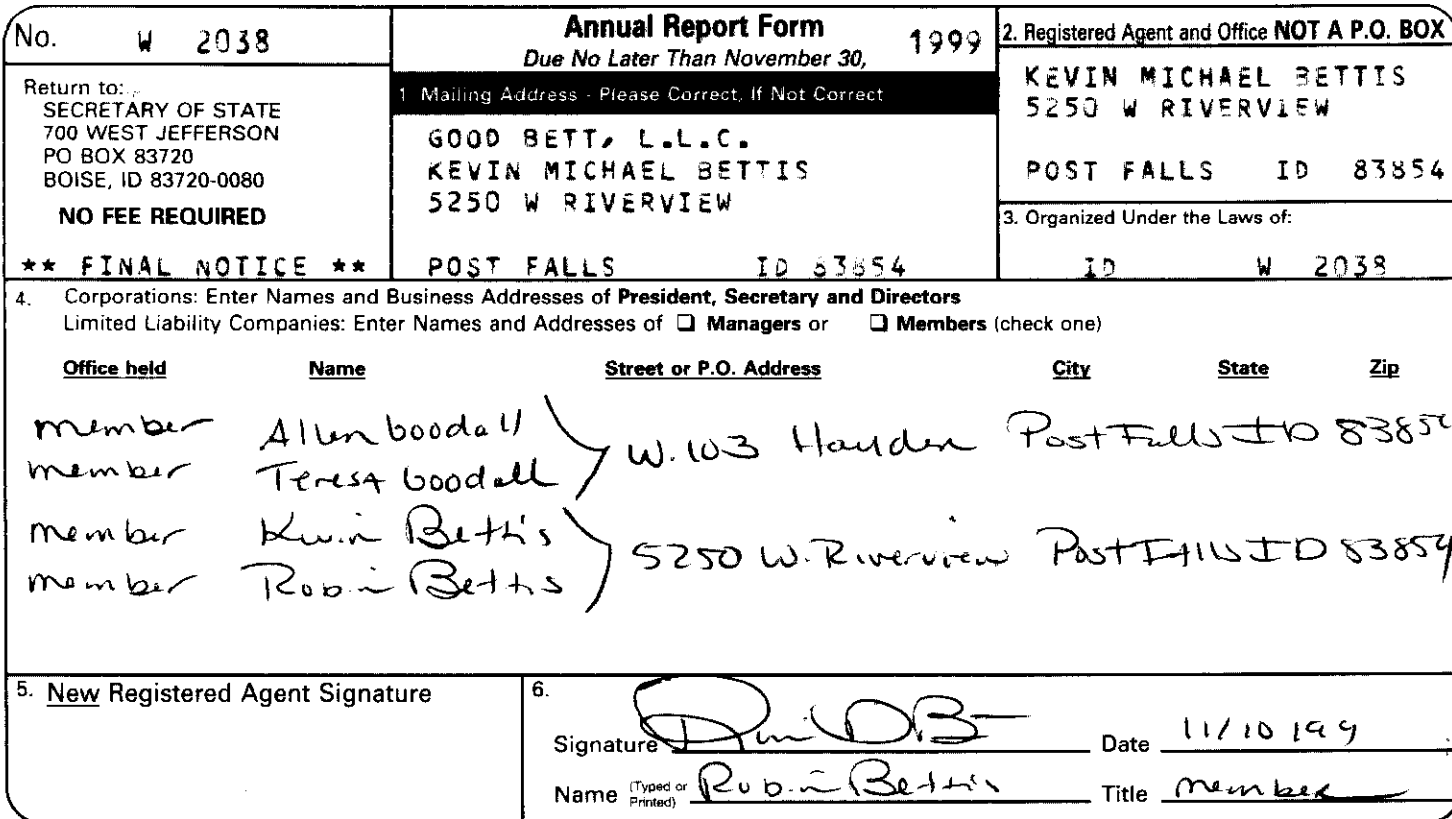 No. W 2038
Annual Report Form 1999
Due No Later Than November 30,
Return to:
SECRETARY OF STATE
700 WEST JEFFERSON
PO BOX 83720
BOISE, ID 83720-0080
NO FEE REQUIRED
** FINAL NOTICE **
1 Mailing Address - Please Correct, If Not Correct
GOOD BETT, L.L.C.
KEVIN MICHAEL BETTIS
5250 W RIVERVIEW
POST FALLS ID 83854
2. Registered Agent and Office NOT A P.O. BOX
KEVIN MICHAEL BETTIS
5250 W RIVERVIEW
POST FALLS ID 83854
3. Organized Under the Laws of:
ID W 2038
4. Corporations: Enter Names and Business Addresses of President, Secretary and Directors
Limited Liability Companies: Enter Names and Addresses of ❑ Managers or ❑ Members (check one)
Office held Name Street or P.O. Address City State Zip
member Allen Goodall W. 103 Hayden Post Falls ID 83854
member Teresa Goodall
member Kevin Bettis 5250 W. Riverview Post Falls ID 83854
member Robin Bettis
5. New Registered Agent Signature
6.
Signature Date 11/10/99
Name (Typed or Printed) Robin Bettis Title member